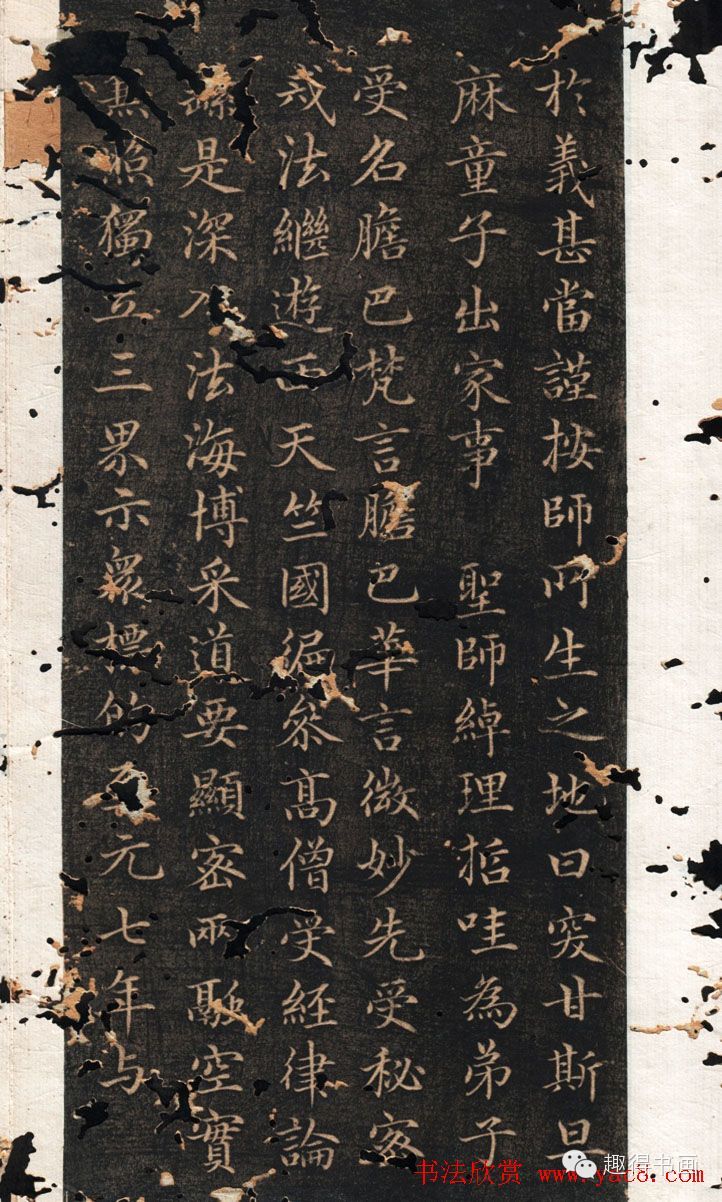 於義甚當謹按師所生之地曰突甘斯旦
麻童子出家事　聖師綽理哲哇為弟子
受名膽巴梵言膽巴華言微妙先受秘密
戒法繼遊西天竺國徧參高僧受経律論
繇是深入法海博采道要顯密兩融空實
照獨立三界示眾標的元七年与
书法欣赏 www.yac8.com
趣得书画